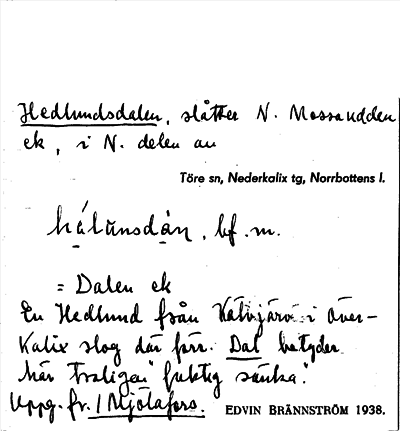 Hedlundsdalen, slåtter N. Mossaudden
ek, i N. delen av
Töre sn, Nederkalix tg, Norrbottens l.
bf. m.
= Dalen ek
En Hedlund från i Över-
Kalix slog där förr. Dal betyder
här troligen "fuktig sänka".
Uppg. fr. 1 Mjölafors. EDVIN BRÄNNSTRÖM 1938.